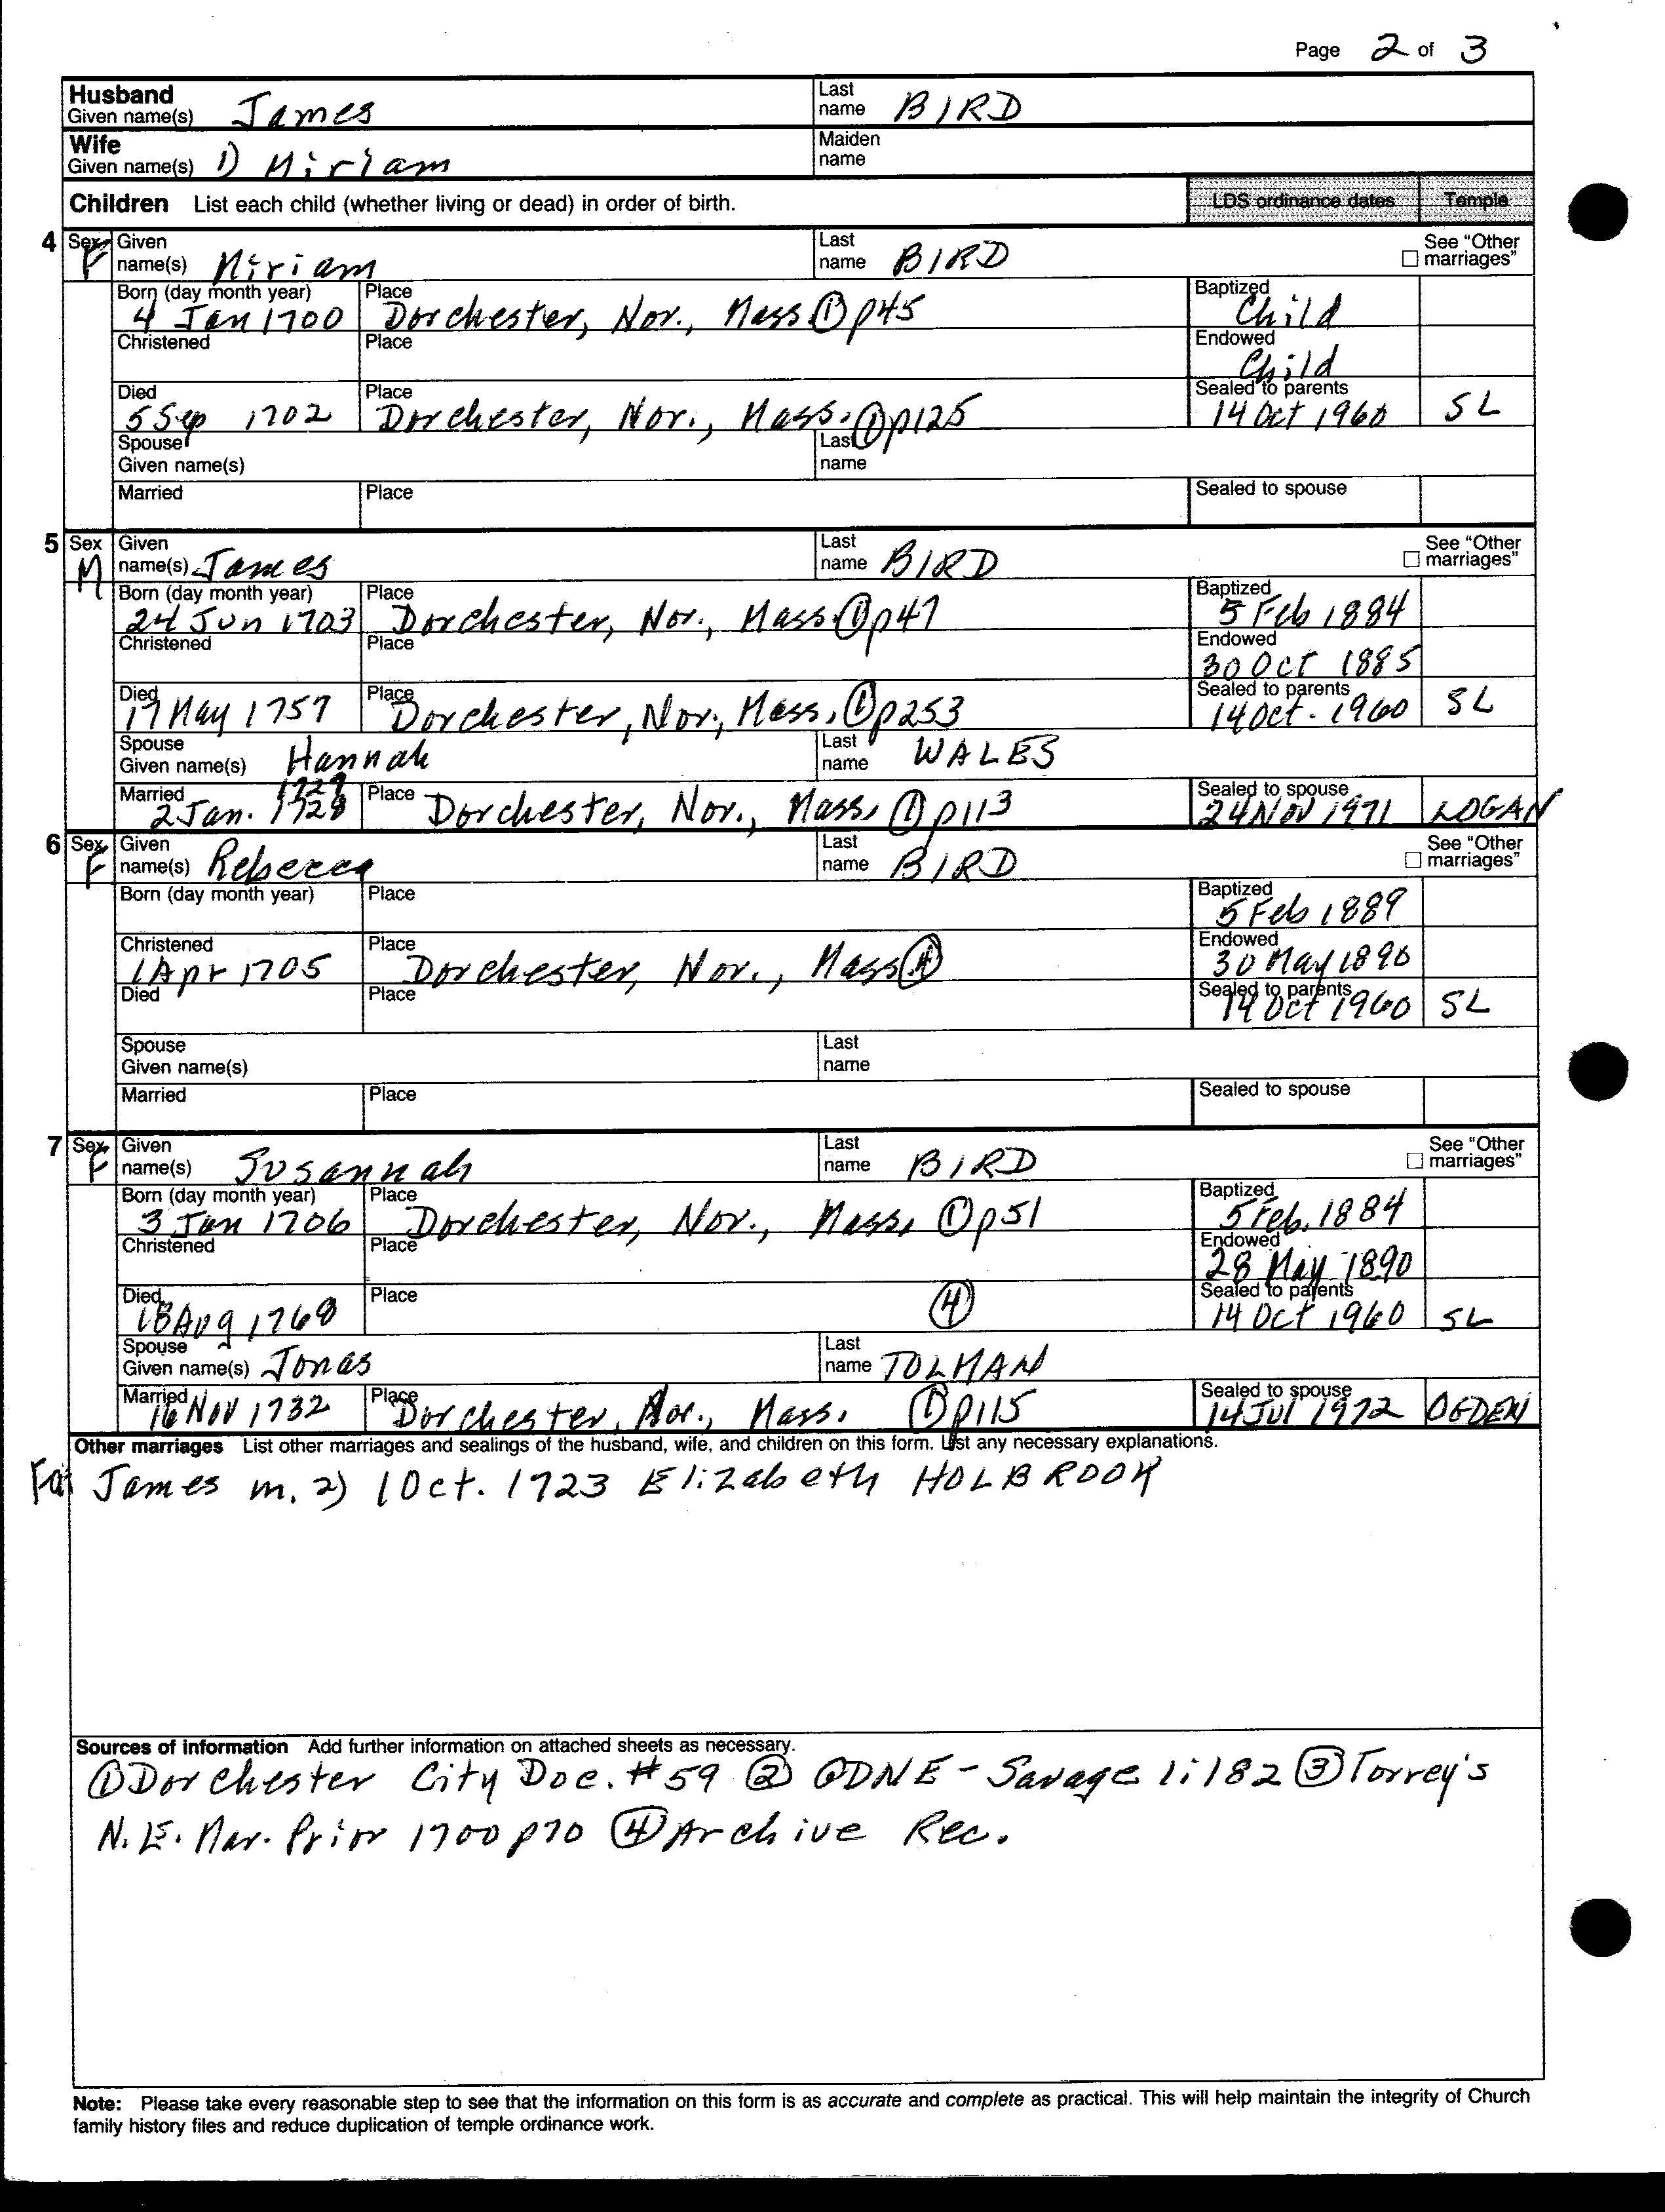 Page 2 of 3
Husband Given name(s) James Last name BIRD
Wife Given name(s) 1) Miriam Maiden name
Children List each child (whether living or dead) in order of birth. LDS ordinance dates Temple
4 Sex F Given name(s) Miriam Last name BIRD See "Other marriages"
Born (day month year) 4 Jan 1700 Place Dorchester, Nor., Mass ① p45 Baptized Child
Christened Place Endowed Child
Died 5 Sep 1702 Place Dorchester, Nor., Mass. ① p125 Sealed to parents 14 Oct 1960 SL
Spouse Given name(s) Last name
Married Place Sealed to spouse
5 Sex M Given name(s) James Last name BIRD See "Other marriages"
Born (day month year) 24 Jun 1703 Place Dorchester, Nor., Mass. ① p47 Baptized 5 Feb 1884
Christened Place Endowed 30 Oct 1885
Died 17 May 1757 Place Dorchester, Nor., Mass, ① p253 Sealed to parents 14 Oct. 1960 SL
Spouse Given name(s) Hannah Last name WALES
Married 2 Jan. 1728 Place Dorchester, Nor., Mass, ① p113 Sealed to spouse 24 Nov 1971 LOGAN
6 Sex F Given name(s) Rebecca Last name BIRD See "Other marriages"
Born (day month year) Place Baptized 5 Feb 1889
Christened 1 Apr 1705 Place Dorchester, Nor., Mass ④ Endowed 30 May 1890
Died Place Sealed to parents 14 Oct 1960 SL
Spouse Given name(s) Last name
Married Place Sealed to spouse
7 Sex F Given name(s) Susannah Last name BIRD See "Other marriages"
Born (day month year) 3 Jan 1706 Place Dorchester, Nor., Mass, ① p51 Baptized 5 Feb. 1884
Christened Place Endowed 28 May 1890
Died 18 Aug 1768 Place ④ Sealed to parents 14 Oct 1960 SL
Spouse Given name(s) Jonas Last name TOLMAN
Married 16 Nov 1732 Place Dorchester, Nor., Mass. ① p115 Sealed to spouse 14 Jul 1972 OGDEN
Other marriages List other marriages and sealings of the husband, wife, and children on this form. List any necessary explanations.
James m. 2) 1 Oct. 1723 Elizabeth HOLBROOK
Sources of information Add further information on attached sheets as necessary.
① Dorchester City Doc. #59 ② GDNE - Savage 1:182 ③ Torrey's
N.E. Mar. Prior 1700 p70 ④ Archive Rec.
Note: Please take every reasonable step to see that the information on this form is as accurate and complete as practical. This will help maintain the integrity of Church
family history files and reduce duplication of temple ordinance work.